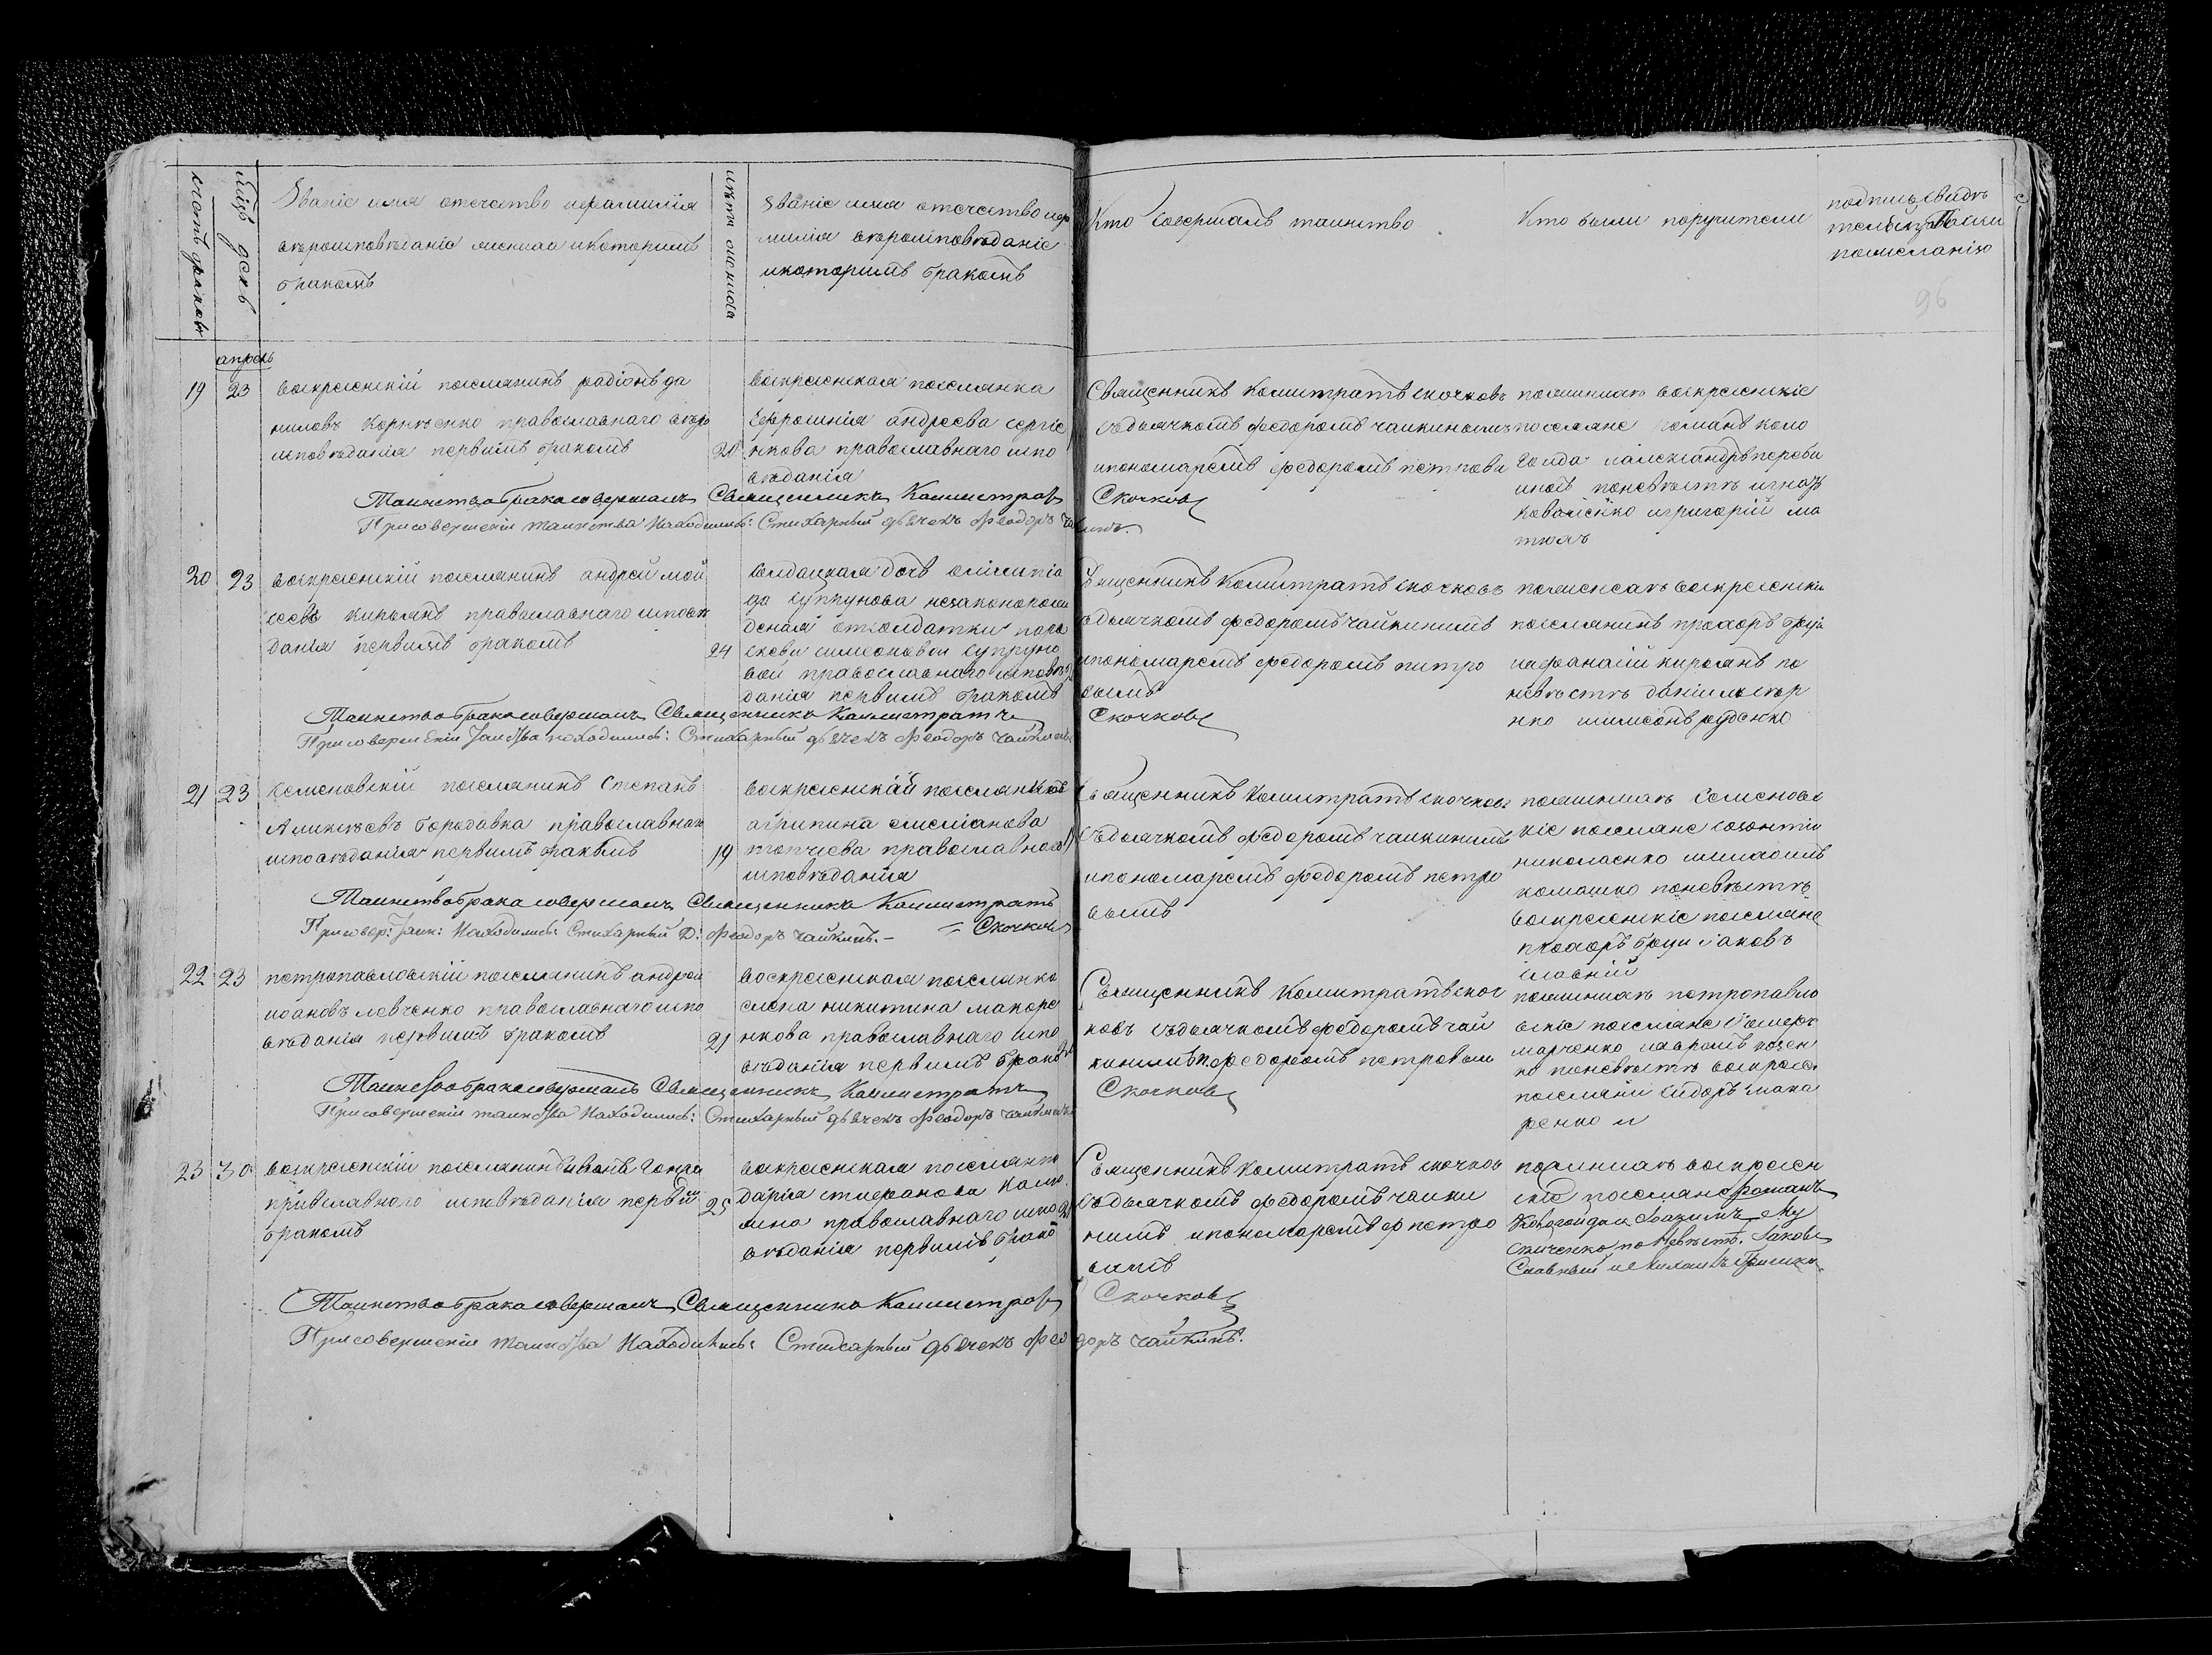 счетъ браковъ
мѣсяцъ день
Званіе имя отечество ифамилія
вѣроисповѣданіе жениха икоторимъ
бракомъ
лѣта жениха
Званіе имя отечество иფа
милія вѣроисповѣданіе
икоторимъ бракомъ
Кто Совершалъ таинство
Кто были поручители
подпись свидѣ
телей записи
пожеланію
96
апрель
19 23
воскресенскій поселянинъ радіонъ да
ниловъ Корнѣенко православнаго вѣро
исповѣданія первимъ бракомъ
20
воскресенская поселянка
Ефросинія андреева сергіе
нкова православнаго испо
вѣданія
Священникъ Калистратъ скочковъ
съдьячкомъ федоромъ чаикинымъ
ипономаремъ федоромъ петрови
поженихъ воскресенскіе
поселяне романъ коло
гойда иалександръ переби
нось поневѣстѣ игнатъ
Коваленко игригорій ма
тяхъ
Таинство брака совершалъ Священникъ Калистратъ Скочковъ
Присовершеніи таинства Находились: Стихарный дьячекъ Феодоръ Чайкинъ.
20 23
воскресенскій поселянинъ андрей мой
сеевъ кирьянъ православнаго исповѣ
данія первимъ бракомъ
24
солдацкая дочь олимпіа
да супрунова незаконорож
деная отсолдатки пара
скеви симеоновой супруно
вой православнаго исповѣ
данія первимъ бракомъ
Священникъ Калистратъ скочковъ
съдьячкомъ федоромъ чайкинимъ
ипономаремъ федоромъ питро
вымъ
поженихѣ воскресенскіи
поселянинъ прохоръ бруй
иафанасій кирьянъ по
невѣстѣ даніилъ
нко исимеонъ руденко
Таинство брака совершалъ Священникъ Калистратъ Скочковъ
Присовершеніи Таинства находились: Стихарный дьячекъ Феодоръ Чайкинъ
21 23
семеновскій поселянинъ Степанъ
Алексѣевъ бородавка православнаго
исповѣданія первимъ бракомъ
19
воскресенскай поселянка
агрипина емеліанова
топчіева православнаго
исповѣданія
Священникъ Калистратъ скочковъ
съдьячкомъ федоромъ чаикинимъ
ипономаремъ федоромъ петро
вымъ
поженихѣ Семеновс
кіе поселяне созонтій
николаенко
комашко поневѣстѣ
воскресенскіе поселяне
прохоръ бруй іаковъ
славній
Таинство брака совершалъ Священникъ Калистратъ
Присовер: Таин: Находились: Стихарный Д: Феодоръ Чайкинъ. – = Скочковъ
22 23
петропавловскій поселянинъ андрей
иоановъ левченко православнаго испо
вѣданія первимъ бракомъ
21
воскресенская поселянка
елена никитина макаре
нкова православнаго испо
вѣданія первимъ бракомъ
Священникъ Калистратъ скоч
ковъ съдьячкомъ федоромъ чай
кинимъ ипфедоромъ петровим
поженихѣ петропавло
вскіе поселяне
марченко
но поневѣстѣ воскресен
поселяни сидоръ мака
ренко и
Таинство брака совершалъ Священникъ Калистратъ Скочковъ
Присовершеніи таинства Находились: Стихарный дьячекъ Феодоръ Чайкинъ
23 30
воскресенскіи поселянинъ иванъ Гонча
православного исповѣданія первим
бракомъ
25
воскресенская поселянка
дарія стефанова
православнаго испо
вѣданія первимъ брако
Священникъ Калистратъ скочков
съдьячкомъ федоромъ чаики
нимъ ипономаремъ ф петро
вимъ
поженихѣ воскресен
скіе поселяне романъ
Кологойда и Максимъ Му
сиченко, по Невѣстѣ. Іаковъ
Славный и Михаилъ Гришко.
Таинство брака совершалъ Священникъ Калистратъ Скочковъ
Присовершеніи таинства Находились: Стихарный дьячекъ Феодоръ Чайкинъ.